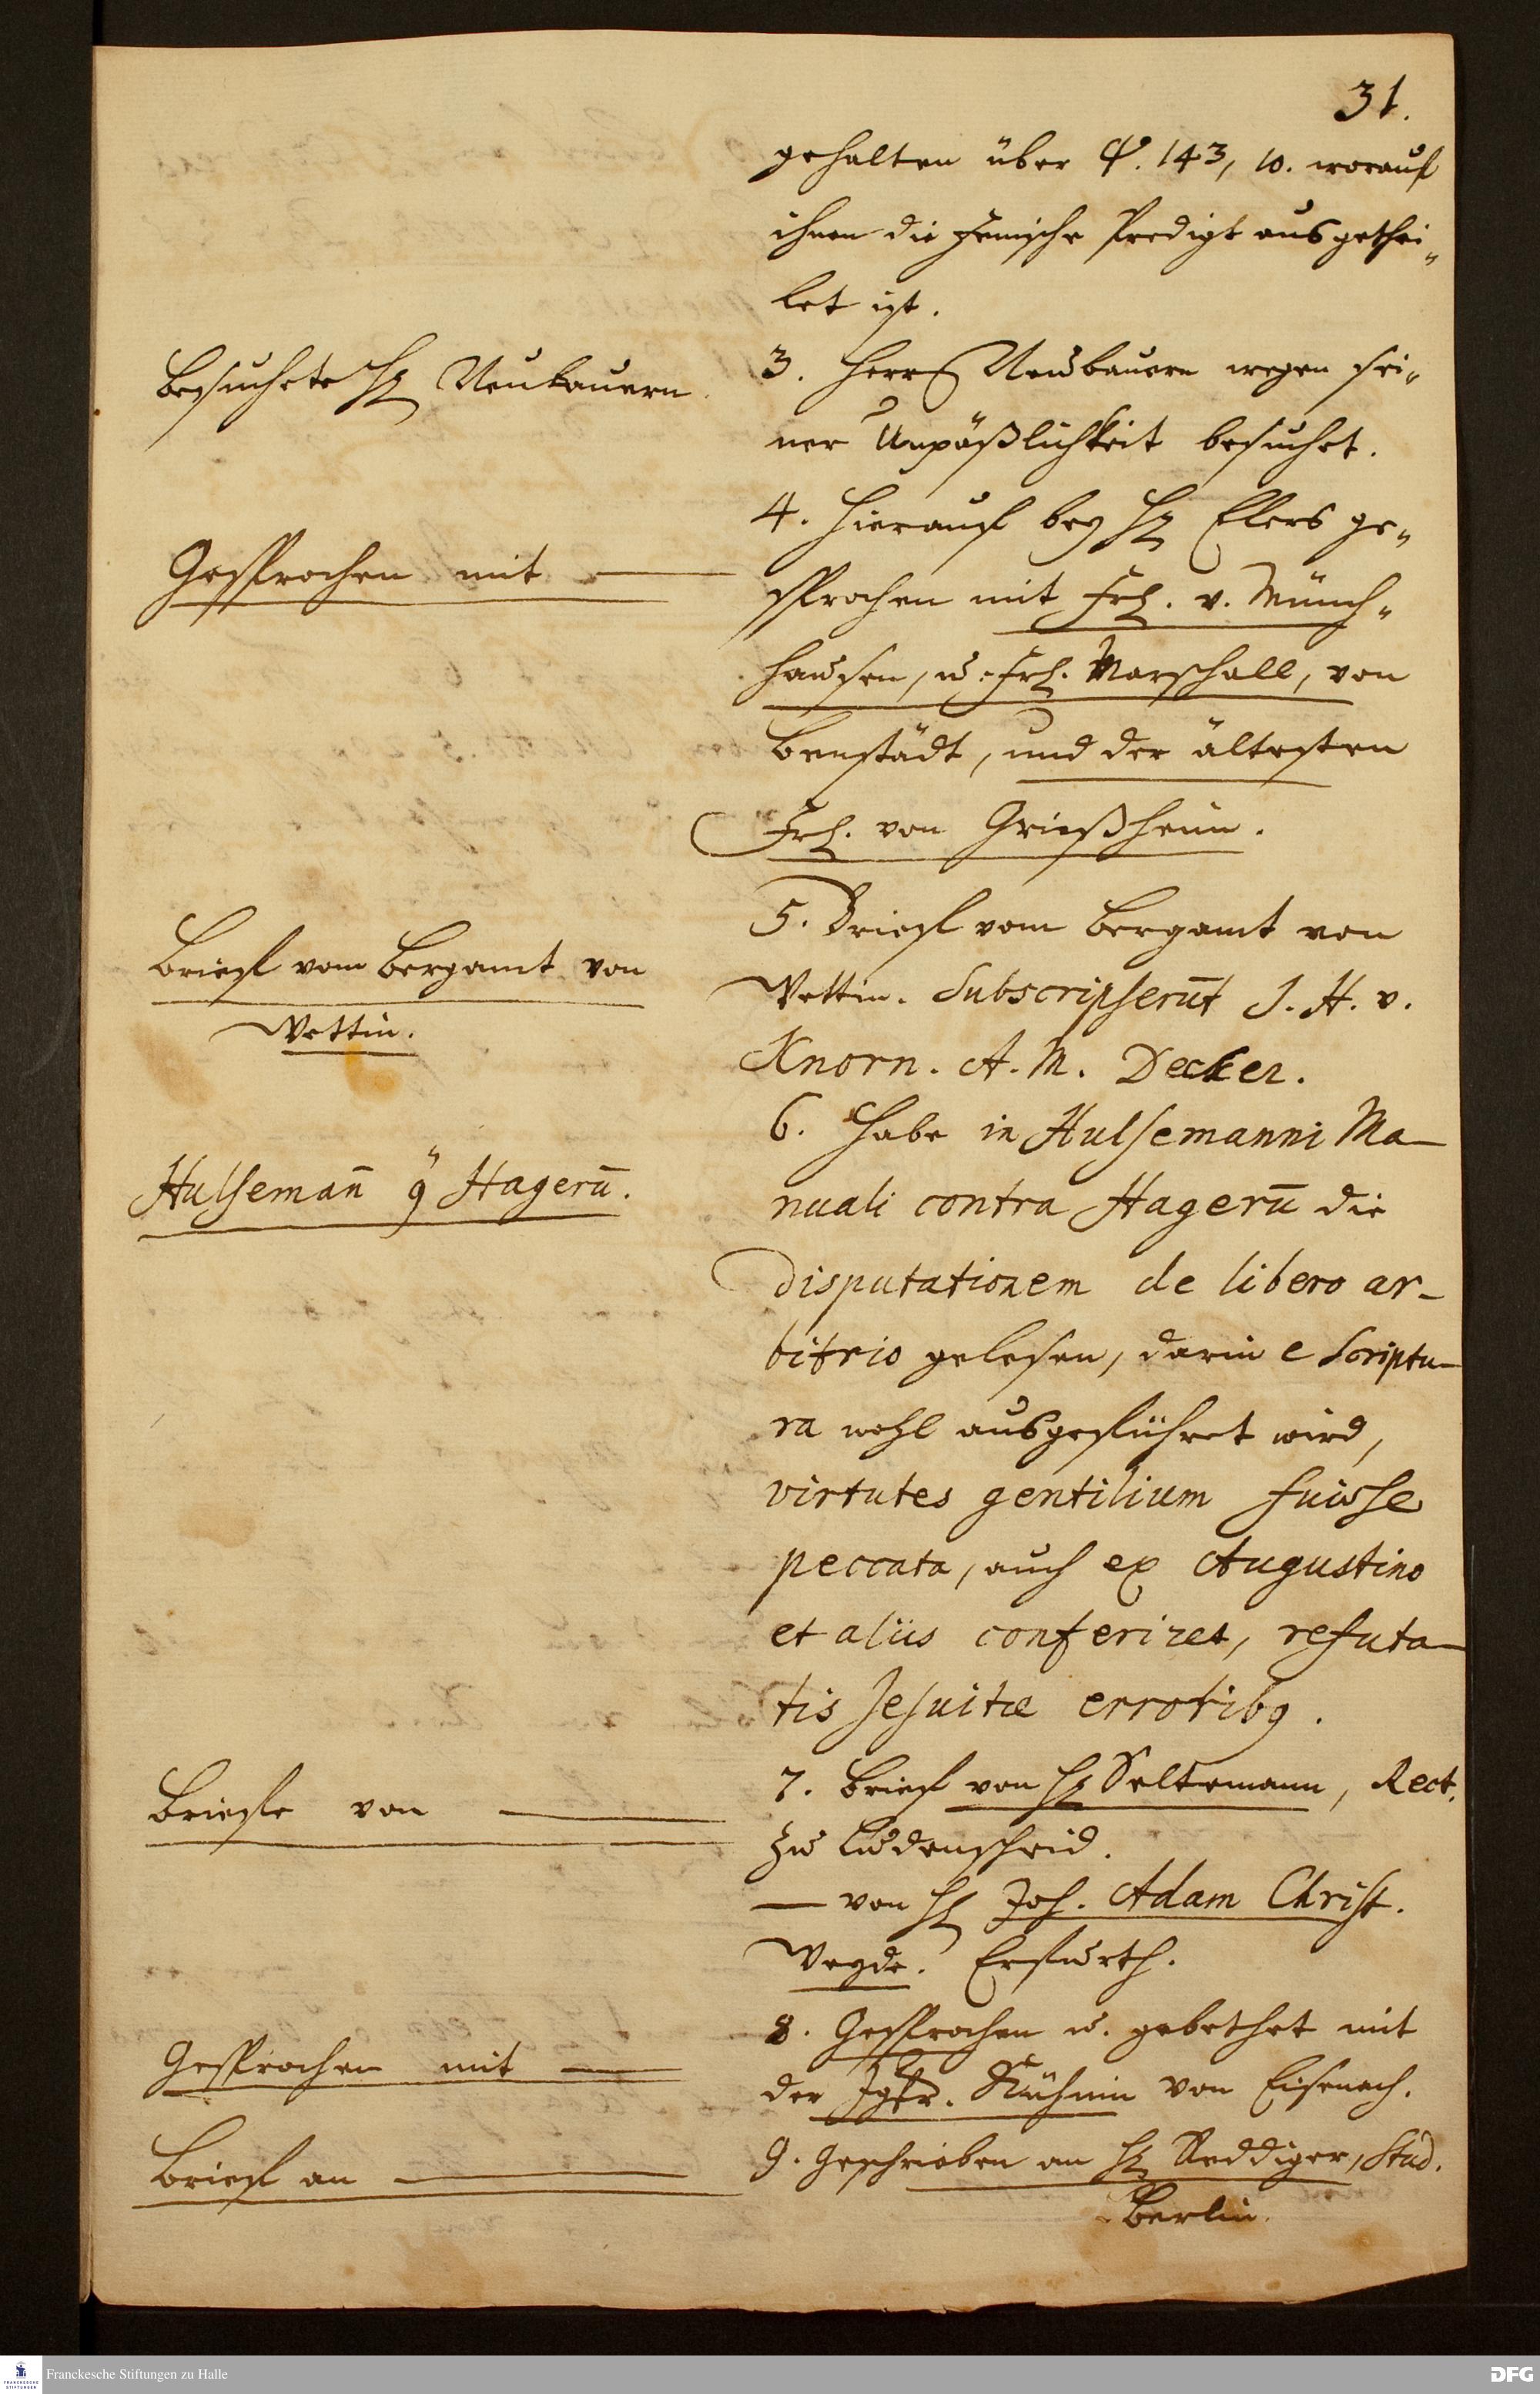 31.
gehalten über Ψ. 143, 10. worauf
ihnen die Henische Predigt ausgethei„
let ist.
Besuchte H. Neubauern.
3. Herrn Neubauern wegen sei„
ner Unpäßlichkeit besuchet.
Gesprochen mit —
4. Hierauf bey H. Elers ge„
sprochen mit Frl. v. Münch„
hausen, u. Frl. Marschall, von
Benstädt, und der ältesten
Frl. von Grießheim.
Brief vom Bergamt von
Wettin.
5. Brief vom Bergamt von
Wettin. Subscripserūt J. H. v.
Knorn. A. M. Decker.
Hulsemañ ꝯ Hagerū.
6. Habe in Hulsemanni Ma-
nuali contra Hagerū die
disputationem de libero ar-
bitrio gelesen, darin e Scriptu-
ra wohl ausgeführet wird,
virtutes gentilium fuisse
peccata, auch ex Augustino
et aliis conferiret, refuta-
tis Jesuitæ erroribꝯ.
Briefe von —
7. Brief von H. Seltemann, Rect.
zu Ludenscheid.
— von H. Joh. Adam Christ.
Weyde. Erfurth.
Gesprochen mit —
8. Gesprochen u. gebethet mit
der Jgfr. Kühnin von Eisenach.
Brief an —
9. Geschrieben an H. Reddiger, Stud.
Berlin.
Franckesche Stiftungen zu Halle
DFG